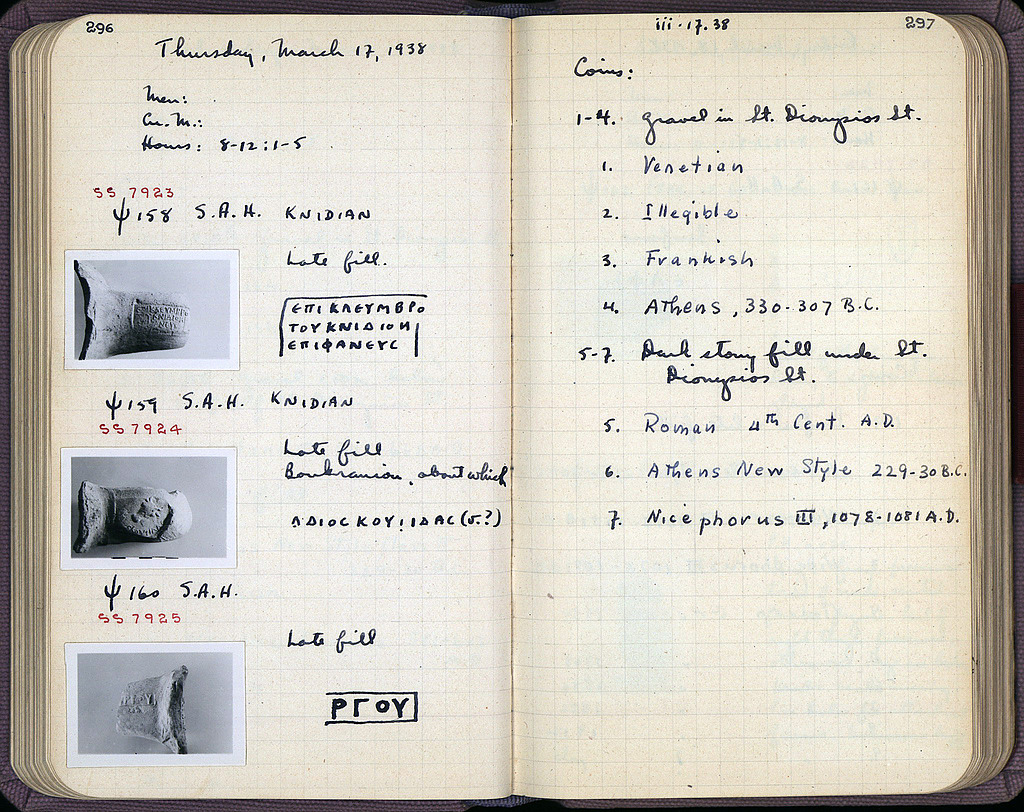 296
Thursday, March 17, 1938
Men:
Cu. M.:
Hours: 8-12; 1-5
SS 7923
ψ 158 S.A.H. KNIDIAN
Late fill.
ΕΠΙΚΛΕΥΜΒΡΟ
ΤΟΥΚΝΙΔΙΟΝ
ΕΠΙΦΑΝΕΥC
ψ 159 S.A.H. KNIDIAN
SS 7924
Late fill
Boukranion, about which
ΛΔΙΟCΚΟΥ:ΙΔΑC (σ.?)
ψ 160 S.A.H.
SS 7925
Late fill
ΡΓΟΥ
iii·17.38
297
Coins:
1-4. gravel in St. Dionysios St.
1. Venetian
2. Illegible
3. Frankish
4. Athens, 330-307 B.C.
5-7. Dark stony fill under St.
Dionysios St.
5. Roman 4th Cent. A.D.
6. Athens New Style 229-30 B.C.
7. Nicephorus III, 1078-1081 A.D.